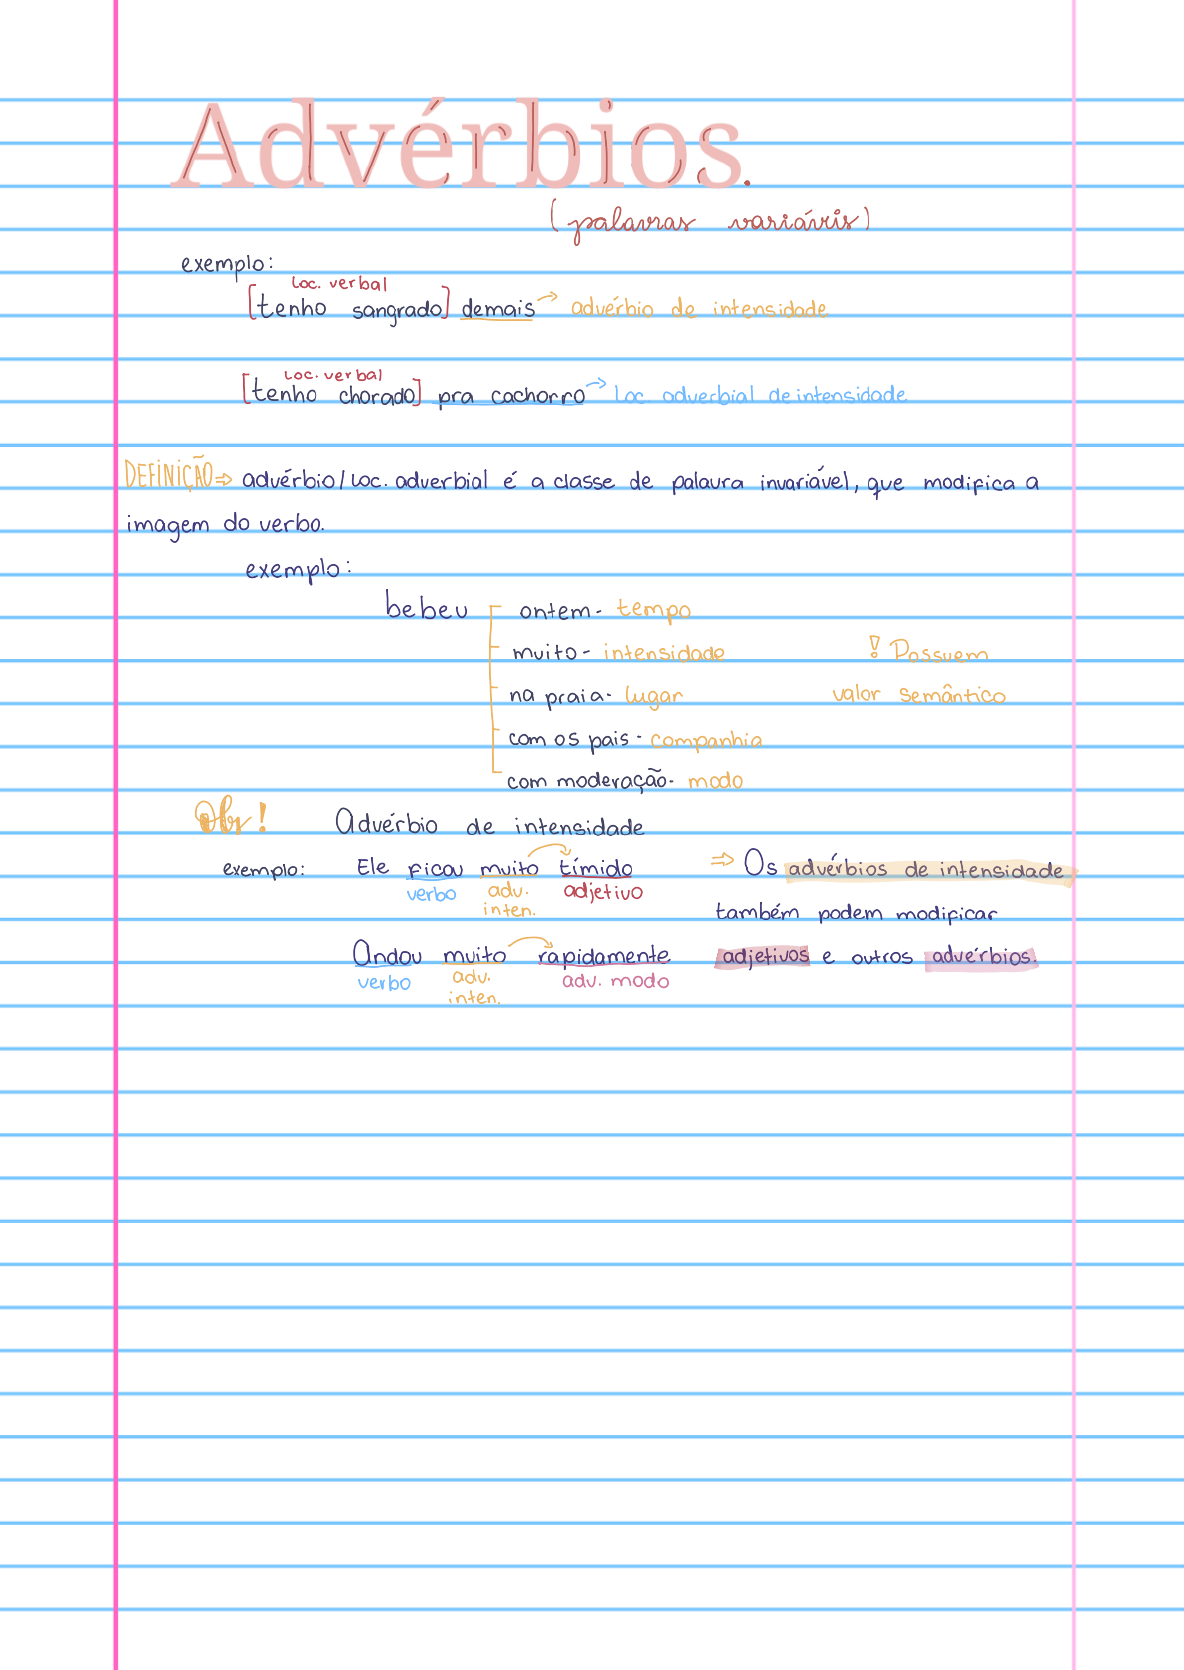 Advérbios.
(palavras variávis)
exemplo:
loc. verbal
[tenho sangrado] demais → advérbio de intensidade
loc. verbal
[tenho chorado] pra cachorro → loc. adverbial de intensidade
DEFINIÇÃO ⇒ advérbio/loc. adverbial é a classe de palavra invariável, que modifica a
imagem do verbo.
exemplo:
bebeu ontem - tempo
muito - intensidade ! Possuem
na praia - lugar valor semântico
com os pais - companhia
com moderação - modo
Obs! Advérbio de intensidade
exemplo: Ele ficou muito tímido ⇒ Os advérbios de intensidade
verbo adv. inten. adjetivo
também podem modificar
Andou muito rapidamente adjetivos e outros advérbios.
verbo adv. inten. adv. modo